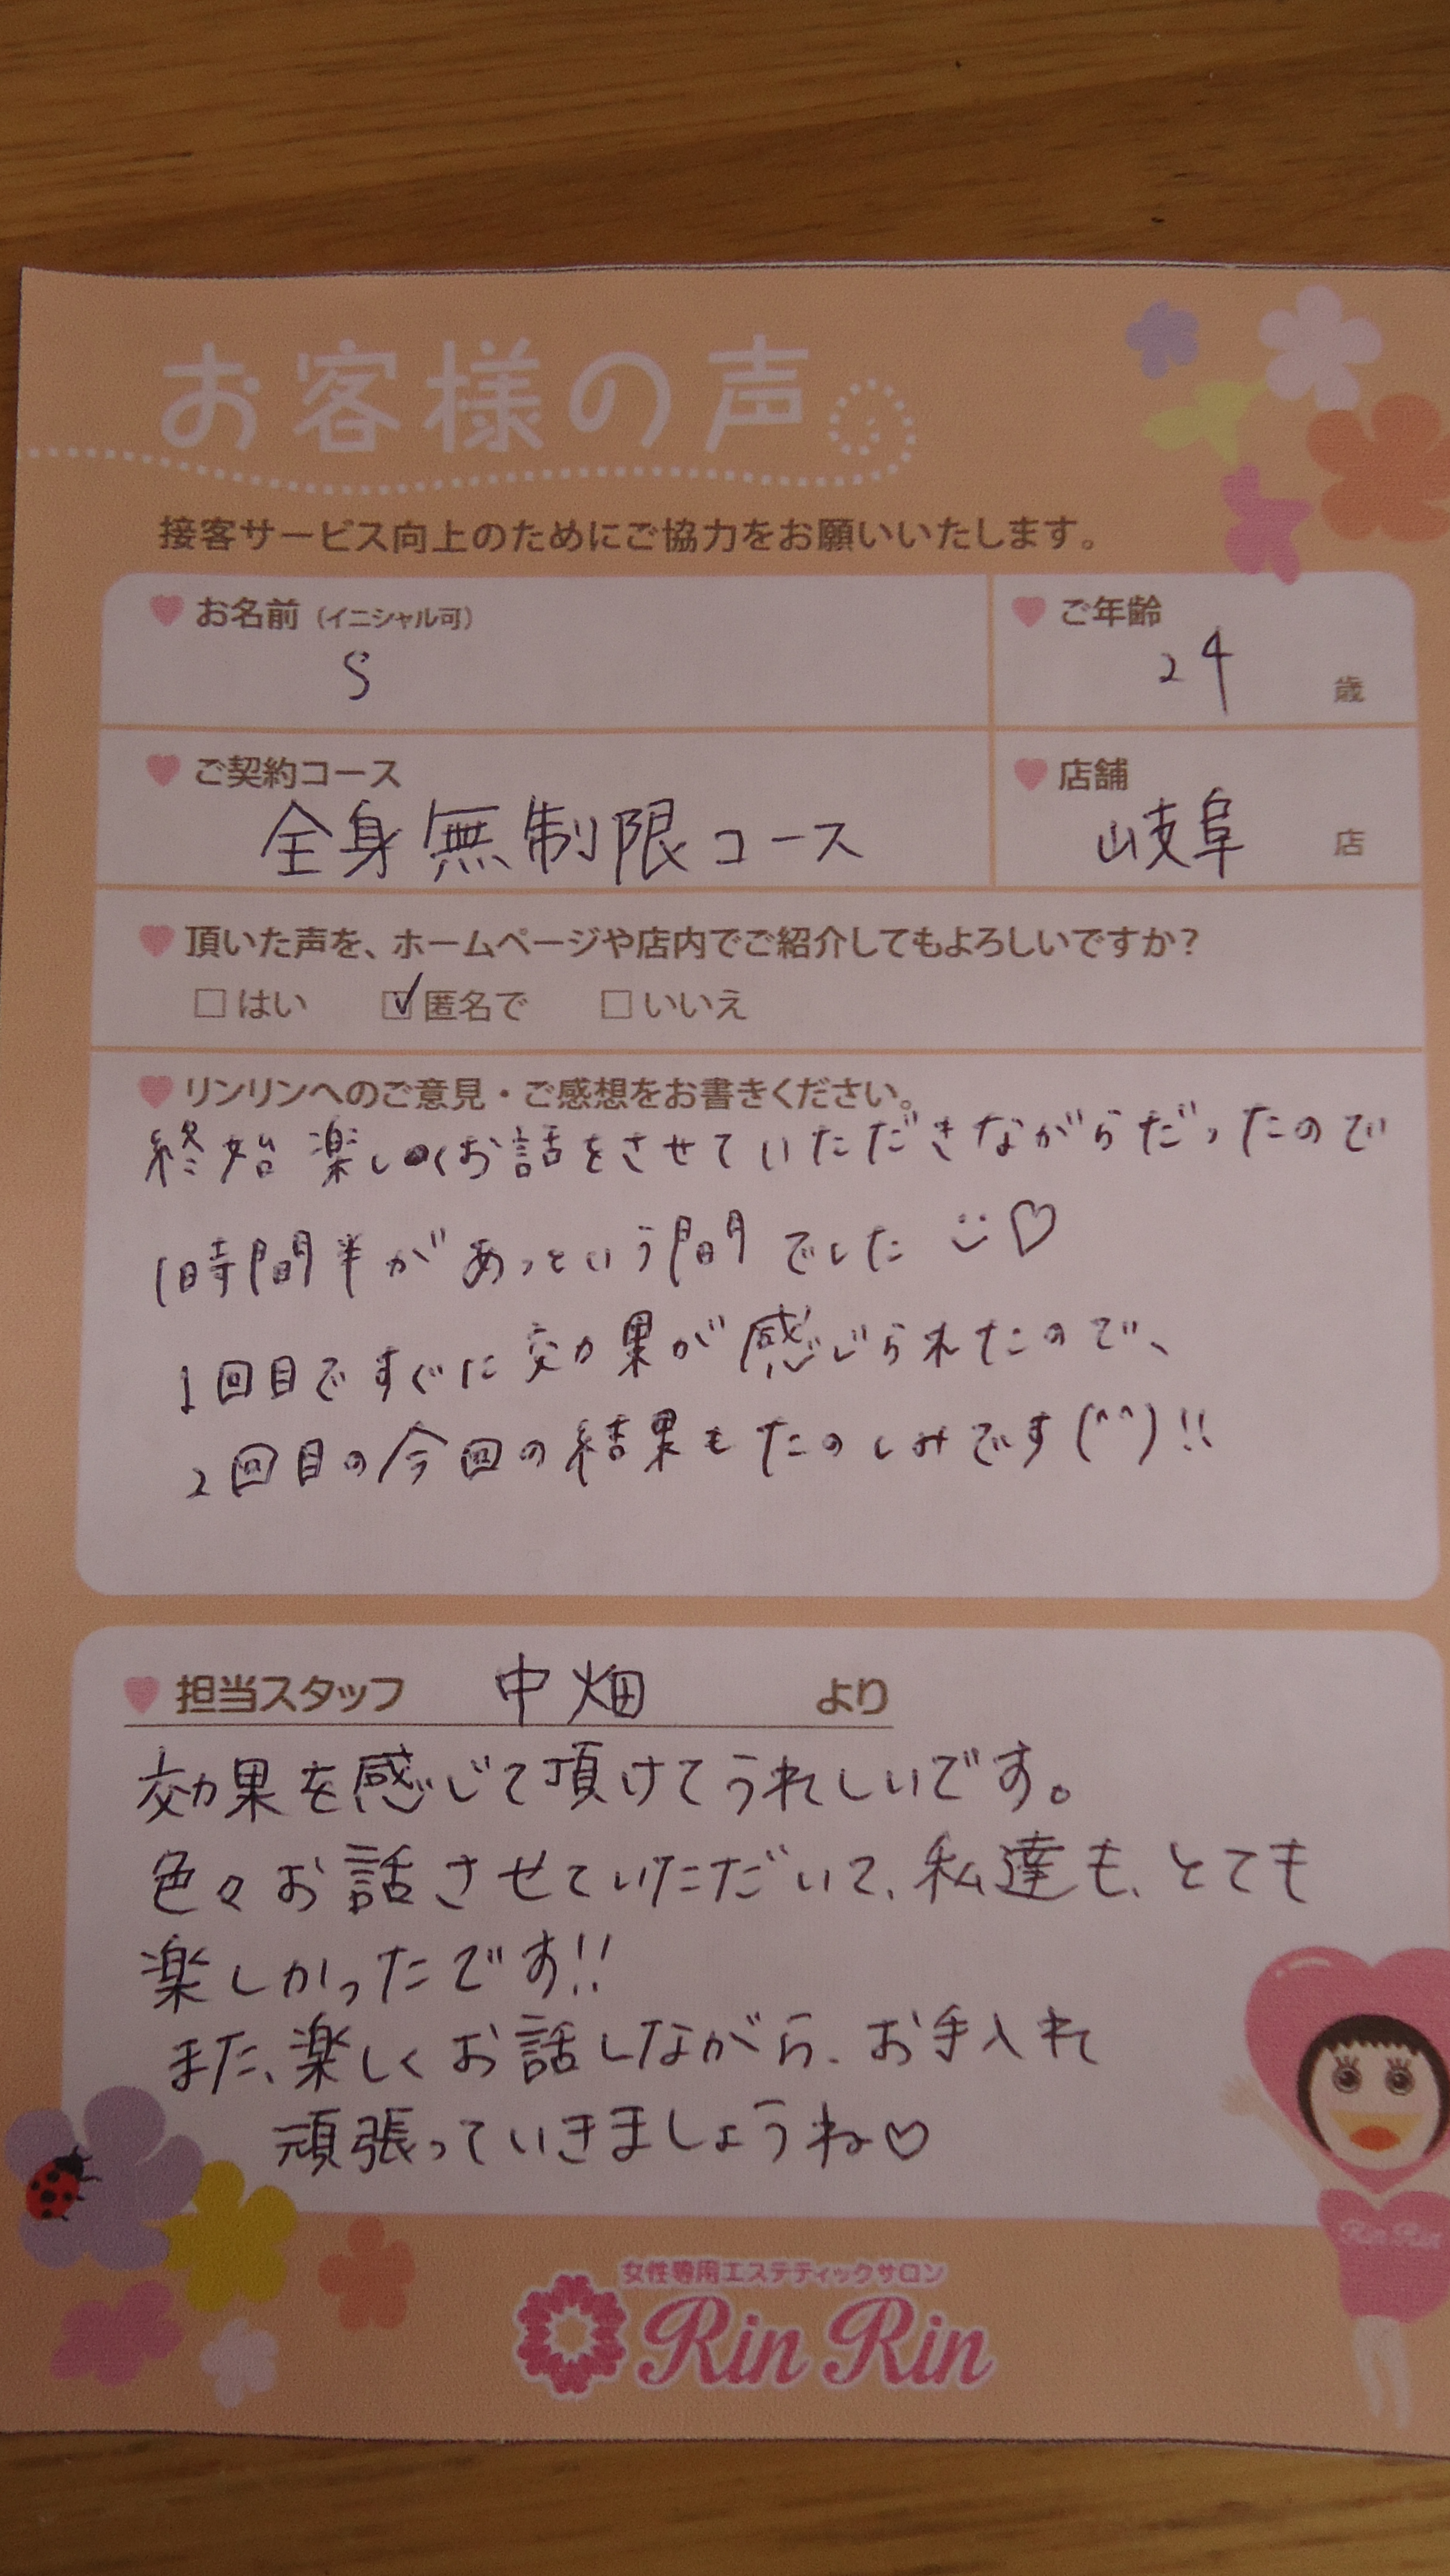 お客様の声
接客サービス向上のためにご協力をお願いいたします。
お名前（イニシャル可）
S
ご年齢
24 歳
ご契約コース
全身無制限コース
店舗
岐阜 店
頂いた声を、ホームページや店内でご紹介してもよろしいですか？
□はい ☑匿名で □いいえ
リンリンへのご意見・ご感想をお書きください。
終始楽しくお話をさせていただきながらだったので
1時間半があっという間でした ♡
1回目ですぐに効果が感じられたので、
2回目の今回の結果もたのしみです(^^)!!
担当スタッフ 中畑 より
効果を感じて頂けてうれしいです。
色々お話させていただいて、私達も、とても
楽しかったです!!
また、楽しくお話しながら、お手入れ
頑張っていきましょうね♡
Rin Rin
女性専用エステティックサロン
Rin Rin